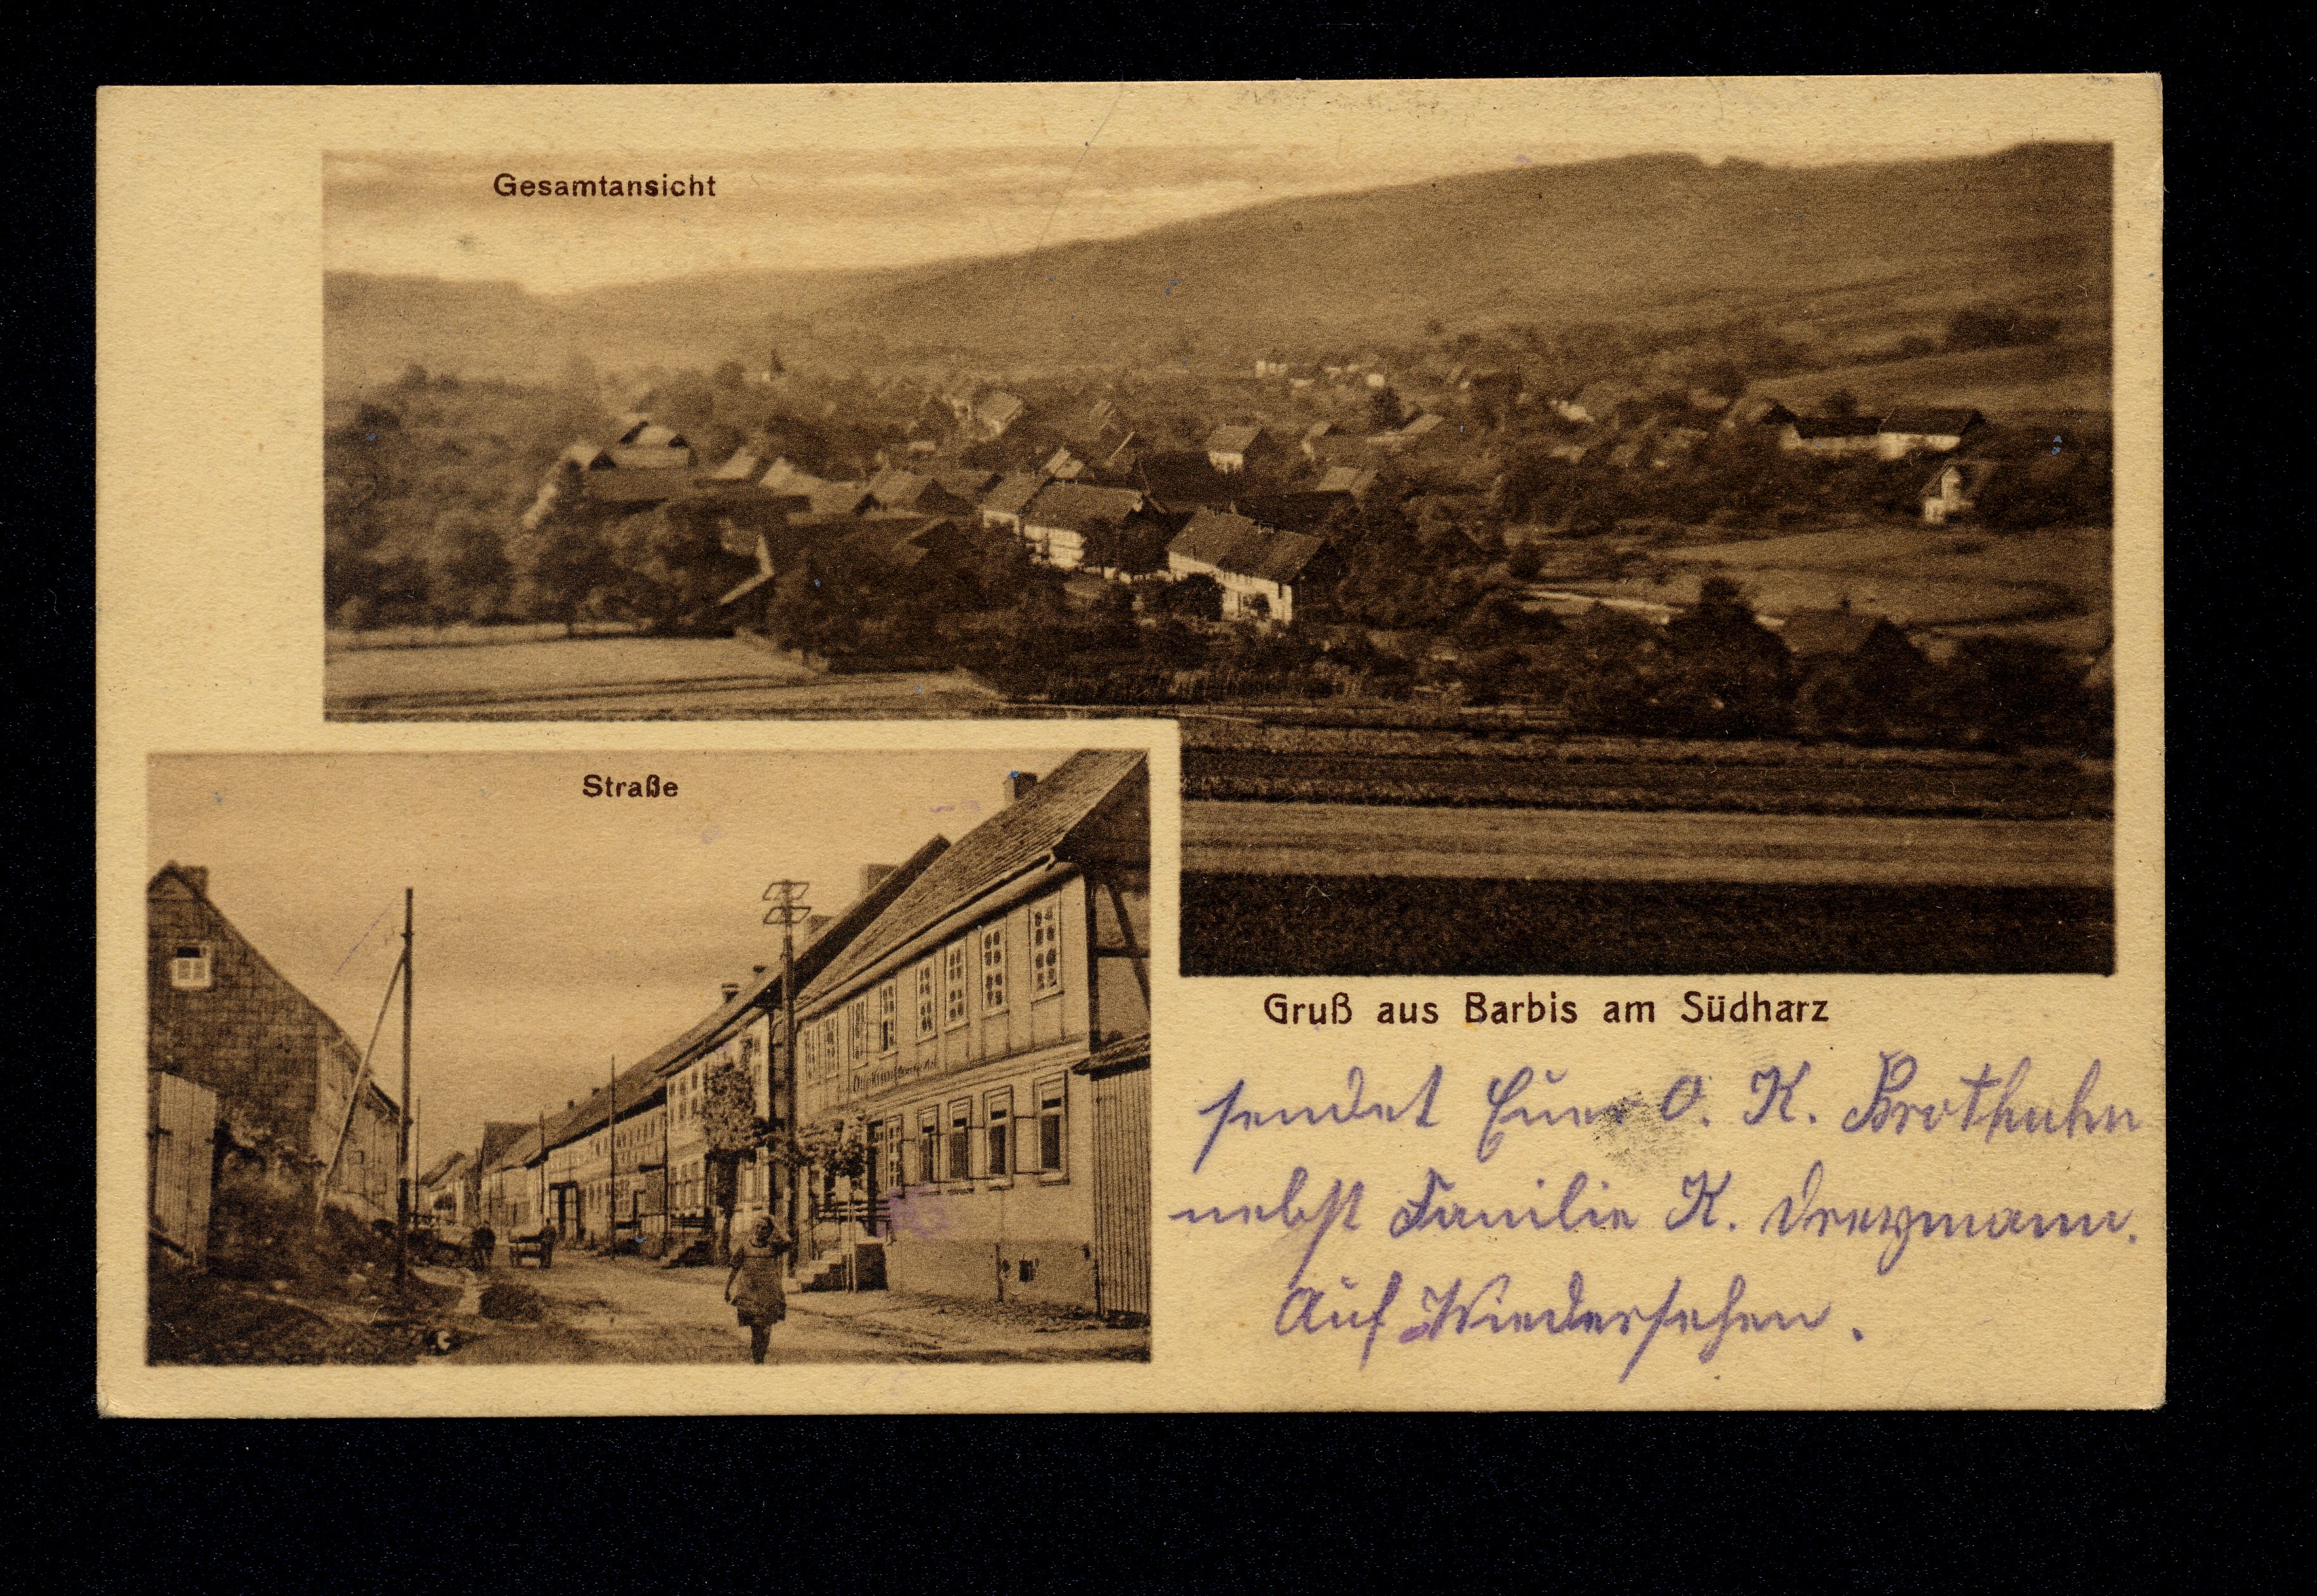 Gesamtansicht
Straße
Gruß aus Barbis am Südharz
sendet Euer O. K. Brothuhn
nebst Familie K. Dreymann.
Auf Wiedersehen.